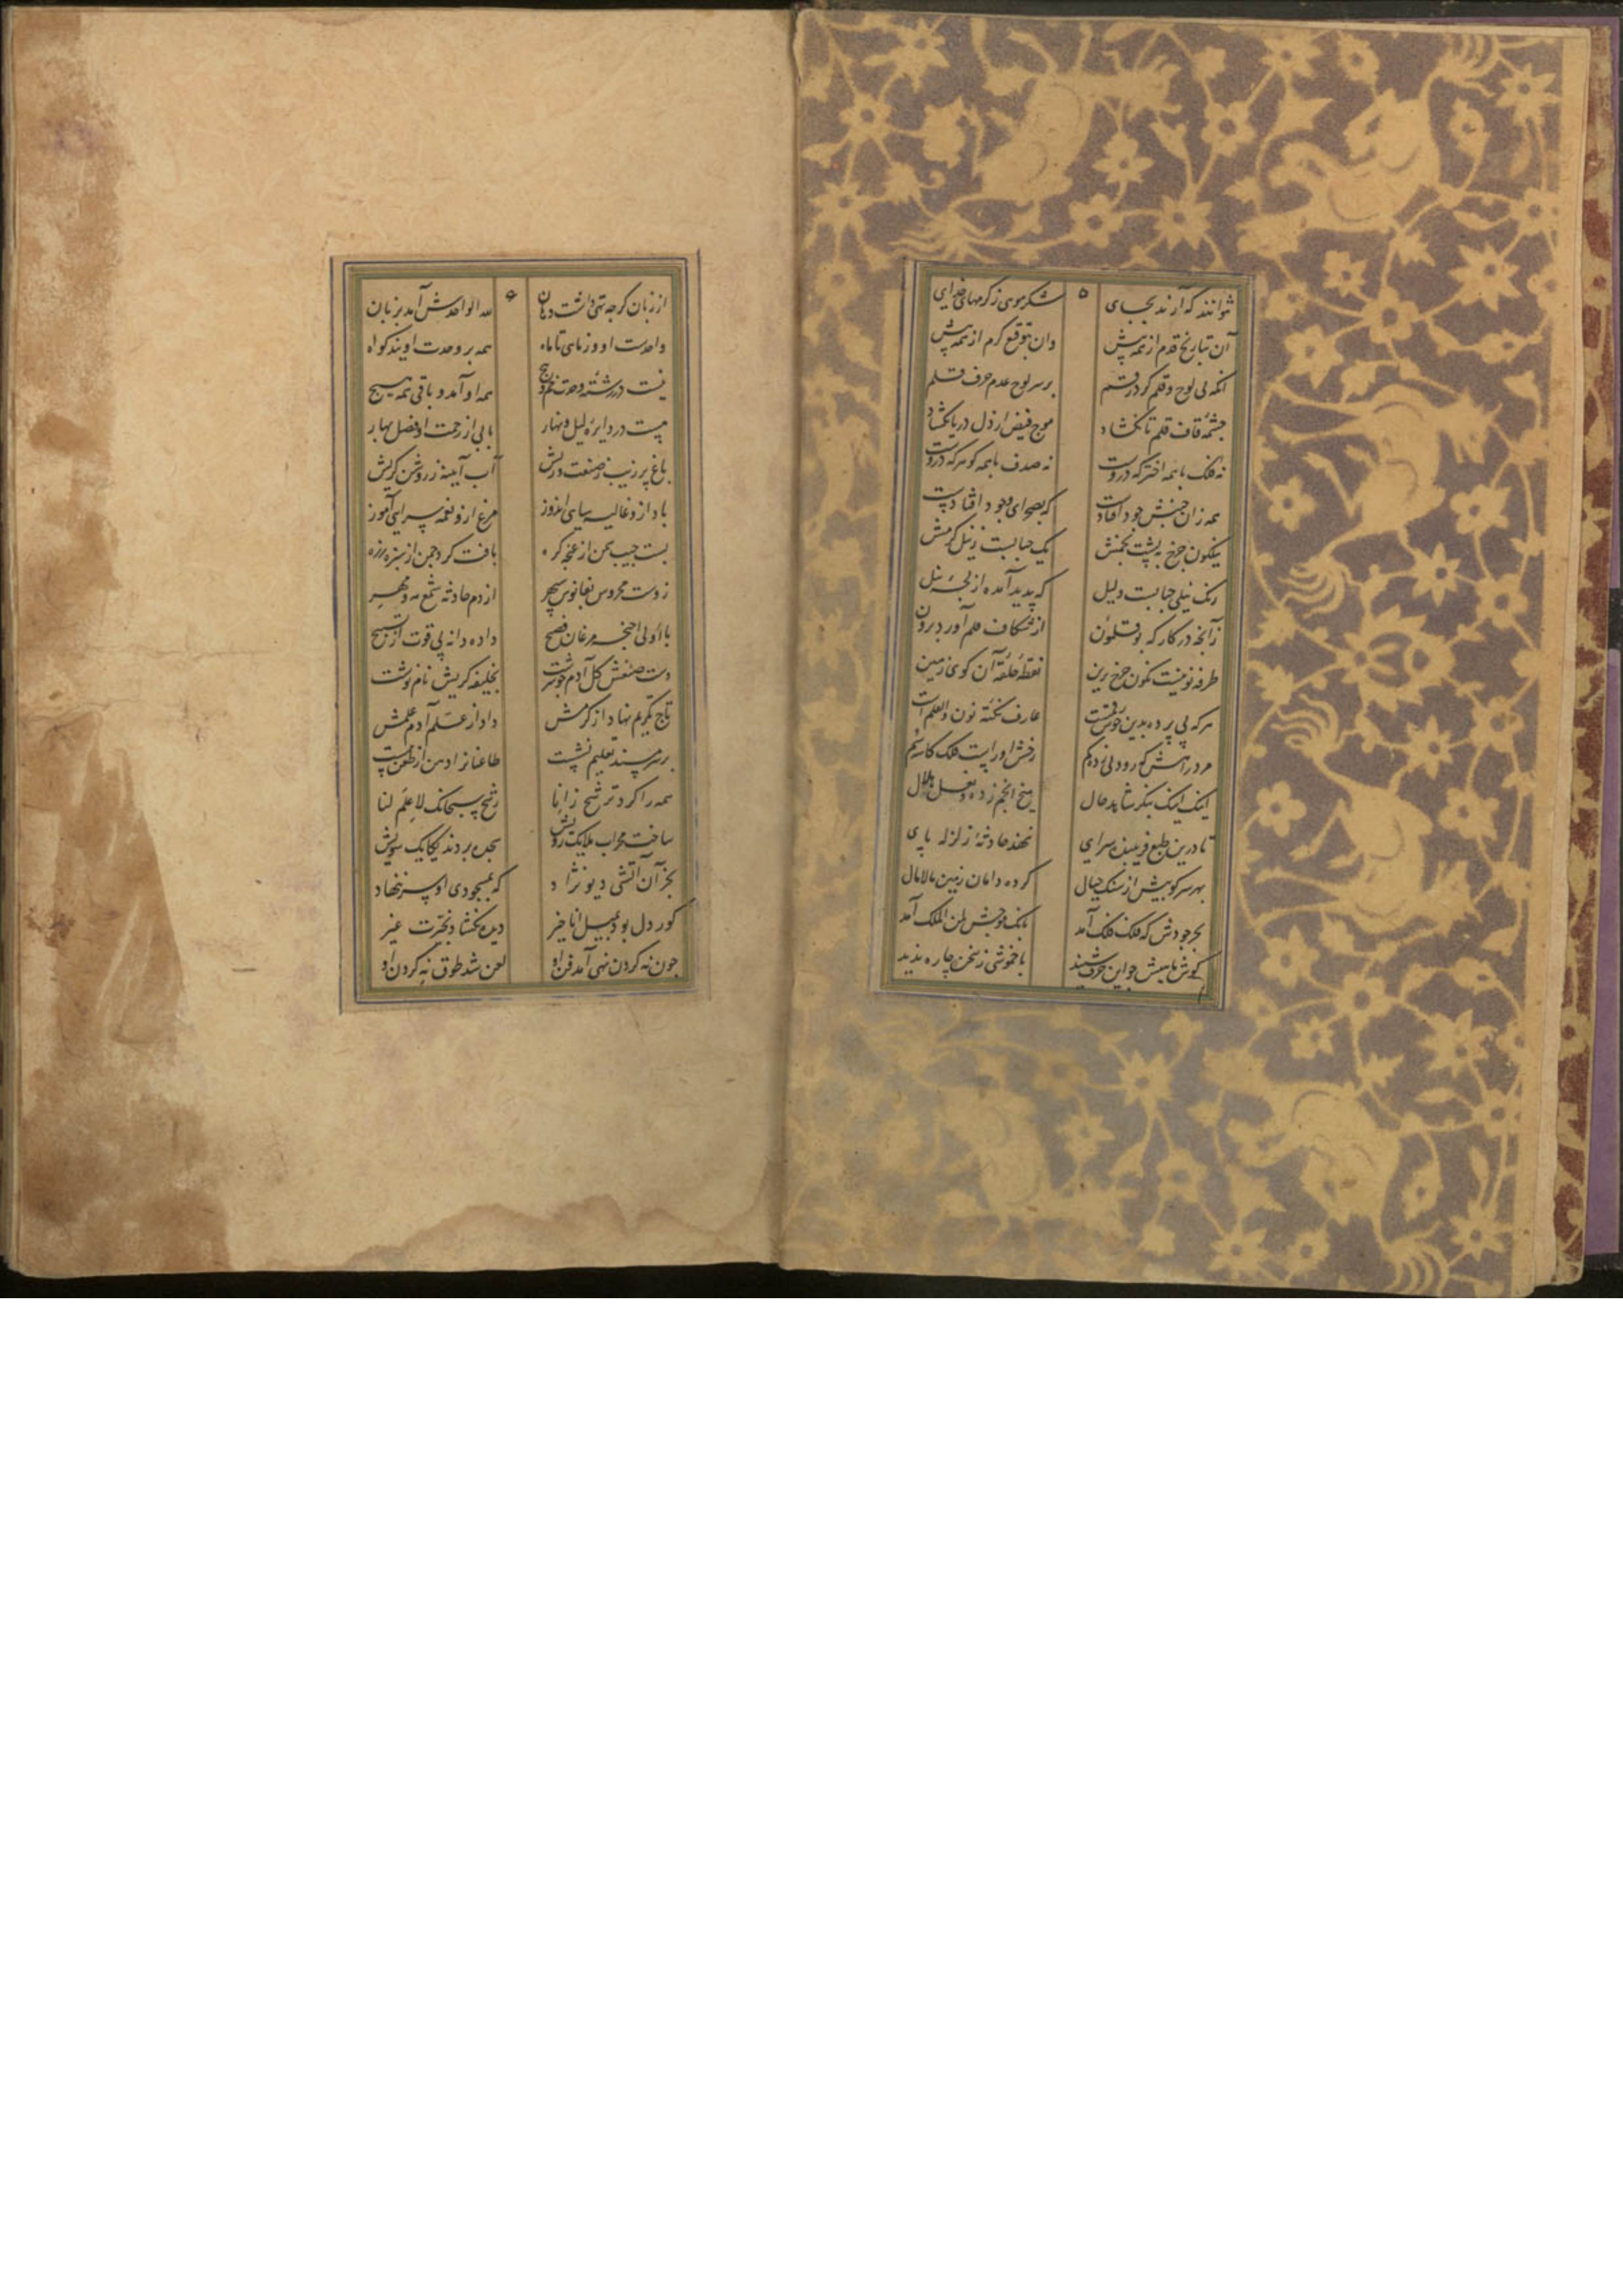 ۵
نتوانند که آرند بجای شکر مویی ز کرمهای خدای
آن بتاریخ قدم از همه پیش وان بتوقیع کرم از همه پیش
آنکه بی لوح و قلم کرد رقم بر سر لوح عدم حرف قلم
چشمه قاف قلم تا نگشاد موج فیض از دل دریا نگشاد
نه فلک با همه اختر که دروست نه صدف با همه گوهر که دروست
همه زان جنبش جود افتادست که بصحرای وجود افتادست
نیلگون چرخ به پشت بخمش یک حبابست ز نیل کرمش
رنگ نیلی حبابست دلیل که پدید آمده از لجه نیل
زآنچه در کار که بوقلمون از شکاف قلم آورد برون
طرفه نونیست نگون چرخ برین نقطه حلقه آن گوی زمین
هر که پی برده بدین حرف عارف نکته نون والقلم است
مرد راهش که رود نی زده کم رخش او راست فلک کاسه سم
اینک اینک بنگر شاهد حال میخ انجم زده و نعل هلال
تا درین طبع فریبنده سرای نجهد حادثه زلزله پای
بهر سرکوبیش از سنگ جبال کرده دامان زمین مالامال
بحر جودش که فلک فلک آمد بانگ موجش لمن الملک آمد
گوش هابیش چو این حرف شنید با خموشی ز سخن چاره ندید
۶
از زبان گرچه تهی داشت دهان لله الواحدش آمد بزبان
واحدست او وز ماهی تا ماه همه بر وحدت اویند گواه
نیست در رشته وحدت خم و پیچ همه او آمد و باقی همه هیچ
چیست در دایره لیل و نهار بابی از رحمت او فصل بهار
باغ پر زیب ز صنعت وریش آب آیینه ز روشن گریش
باد ازو غالیه سای نوروز مرغ ازو نغمه سرایی آموز
بست جیب سمن از غنچه گره بافت گرد چمن از سبزه زره
زوست محروس بفانوس سپهر از دم حادثه شمع مه و مهر
با اولی اجنحه مرغان فصیح داده دانه پی قوت از تسبیح
دست صنعش گل آدم چو سرشت بخلیفه گریش نام نوشت
تاج تکریم نهاد از کرمش داد از علم آدم علمش
بر سر مسند تعلیم نشست طاعنان را دهن از طعن ببست
همه را کرد ترشح ز انا رشح سبحانک لا علم لنا
ساخت محراب ملایک رویش سجده بردند یکایک سویش
بجز آن آتشی دیو نژاد که بمسجودی او سر ننهاد
کور دل بود بسیل انا خیر دیده نگشاد بحیرت غیر
چون نه گردن نهی آمد فن او لعن شد طوق نه گردن او